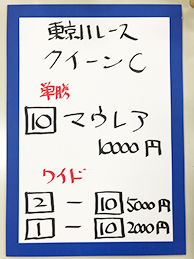 東京11レース
クイーンC
単勝
10 マウレア
10000円
ワイド
2 - 10 5000円
1 - 10 2000円